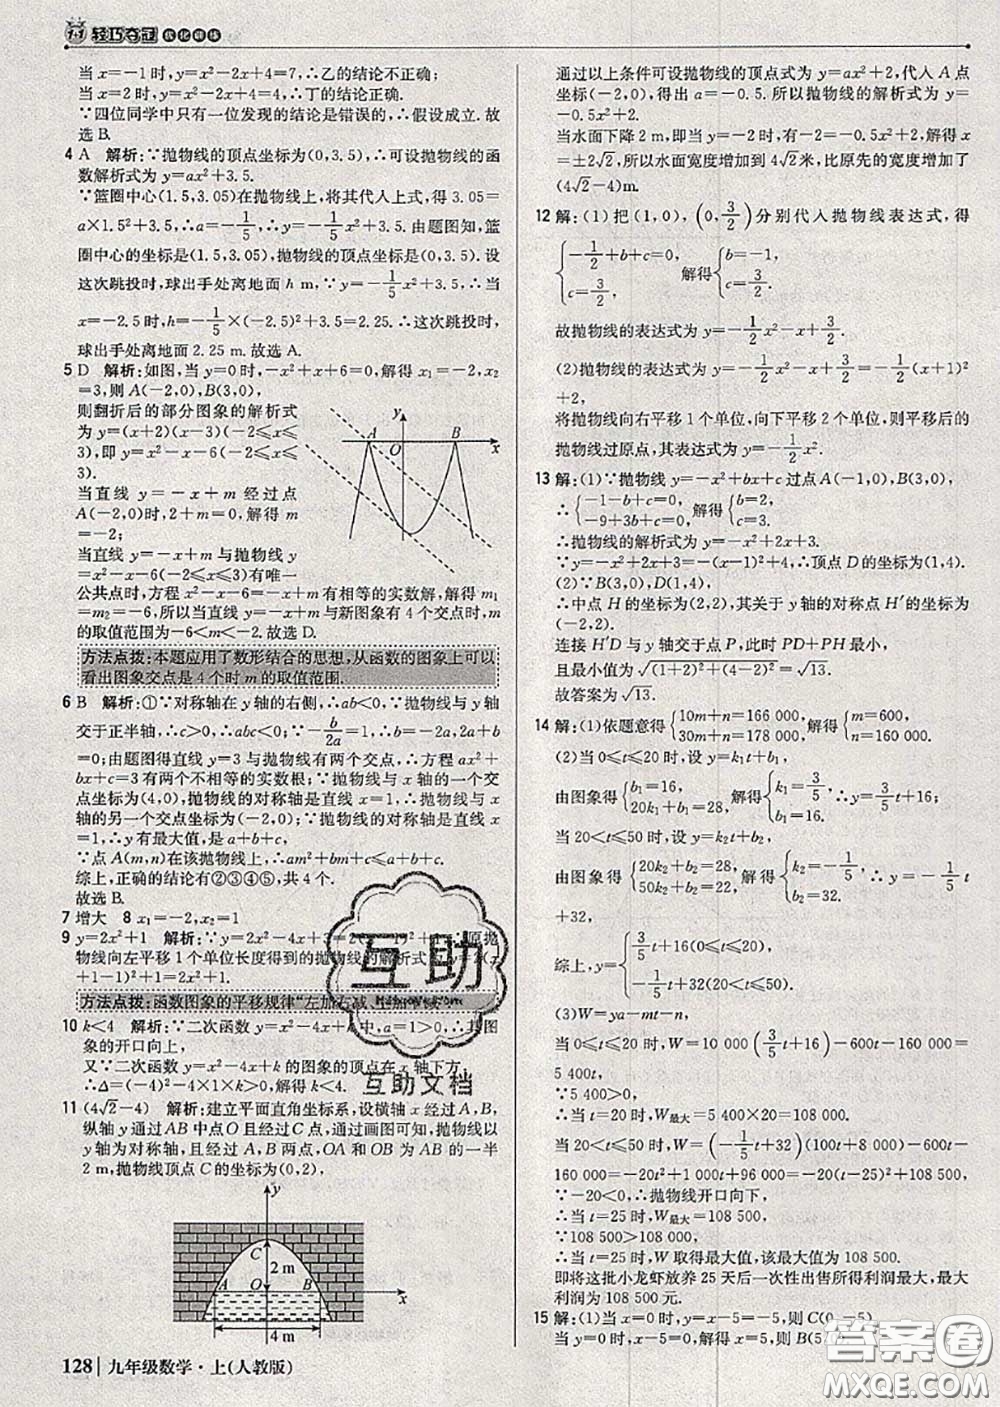 1+1 轻巧夺冠 优化训练
当 x=-1时,y=x²-2x+4=7,∴乙的结论不正确;
当 x=2时,y=x²-2x+4=4,∴丁的结论正确.
∵四位同学中只有一位发现的结论是错误的,∴假设成立.故
选 B.
4 A 解析:∵抛物线的顶点坐标为(0,3.5),∴可设抛物线的函
数解析式为 y=ax²+3.5.
∵篮圈中心(1.5,3.05)在抛物线上,将其代入上式,得 3.05=
a×1.5²+3.5,∴a=-1/5,∴y=-1/5x²+3.5.由题图知,篮
圈中心的坐标是(1.5,3.05),抛物线的顶点坐标是(0,3.5).设
这次跳投时,球出手处离地面 h m,∵y=-1/5x²+3.5,∴当
x=-2.5时,h=-1/5×(-2.5)²+3.5=2.25.∴这次跳投时,
球出手处离地面 2.25 m.故选 A.
5 D 解析:如图,当 y=0时,-x²+x+6=0,解得 x₁=-2,x₂
=3,则 A(-2,0),B(3,0),
则翻折后的部分图象的解析式
为 y=(x+2)(x-3)(-2⩽x⩽
3),即 y=x²-x-6(-2⩽x⩽
3),
当直线 y=-x+m 经过点
A(-2,0)时,2+m=0,解得 m
=-2;
当直线 y=-x+m 与抛物线 y
=x²-x-6(-2⩽x⩽3)有唯一
公共点时,方程 x²-x-6=-x+m 有相等的实数解,解得 m₁
=m₂=-6,所以当直线 y=-x+m 与新图象有4个交点时,m
的取值范围为-6<m<-2.故选 D.
y
A B
O x
方法点拨:本题应用了数形结合的思想,从函数的图象上可以
看出图象交点是4个时 m 的取值范围.
6 B 解析:①∵对称轴在 y 轴的右侧,∴ab<0,∵抛物线与 y 轴
交于正半轴,∴c>0,∴abc<0;②∵-b/2a=1,∴b=-2a,2a+b
=0;由题图得直线 y=3与抛物线有两个交点,∴方程 ax²+bx+c
=3有两个不相等的实数根;∵抛物线与 x 轴的一个交
点坐标为(4,0),抛物线的对称轴是直线 x=1,∴抛物线与 x
轴的另一个交点坐标为(-2,0);∵抛物线的对称轴是直线 x
=1,∴y 有最大值,是 a+b+c,
∵点 A(m,n)在该抛物线上,∴am²+bm+c⩽a+b+c.
综上,正确的结论有②③④⑤,共4个.
故选 B.
7 增大 8 x₁=-2,x₂=1
9 y=2x²+1 解析:∵y=2x²-4x+3=2(x-1)²+1,∴原抛
物线向左平移1个单位长度得到的抛物线的解析式为 y=2(x
+1-1)²+1=2x²+1.
方法点拨:函数图象的平移规律“左加右减、上加下减”.
10 k<4 解析:∵二次函数 y=x²-4x+k 中,a=1>0,∴其图
象的开口向上,
又∵二次函数 y=x²-4x+k 的图象的顶点在 x 轴下方,
∴Δ=(-4)²-4×1×k>0,解得 k<4.
11 (4√2-4) 解析:建立平面直角坐标系,设横轴 x 经过 A,B,
纵轴 y 通过 AB 中点 O 且经过 C 点,通过画图可知,抛物线以
y 轴为对称轴,且经过 A,B 两点,OA 和 OB 为 AB 的一半
2 m,抛物线顶点 C 的坐标为(0,2),
y
C
2 m
A O B x
4 m
128 九年级数学·上(人教版)
通过以上条件可设抛物线的顶点式为 y=ax²+2,代入 A 点
坐标(-2,0),得出 a=-0.5.所以抛物线的解析式为 y=
-0.5x²+2.
当水面下降2 m,即当 y=-2时,有-2=-0.5x²+2,解得 x=
±2√2,所以水面宽度增加到4√2米,比原先的宽度增加了
(4√2-4)m.
12 解:(1)把(1,0),(0,3/2)分别代入抛物线表达式,得
{-1/2+b+c=0, c=3/2, 解得{b=-1, c=3/2.
故抛物线的表达式为 y=-1/2x²-x+3/2.
(2)抛物线的表达式为 y=-1/2x²-x+3/2=-1/2(x+1)²
+2,
将抛物线向右平移1个单位,向下平移2个单位,则平移后的
抛物线过原点,其表达式为 y=-1/2x².
13 解:(1)∵抛物线 y=-x²+bx+c 过点 A(-1,0),B(3,0),
∴{-1-b+c=0, -9+3b+c=0, 解得{b=2, c=3.
∴抛物线的解析式为 y=-x²+2x+3.
∵y=-x²+2x+3=-(x-1)²+4,∴顶点 D 的坐标为(1,4).
(2)∵B(3,0),D(1,4),
∴中点 H 的坐标为(2,2),其关于 y 轴的对称点 H′的坐标为
(-2,2).
连接 H′D 与 y 轴交于点 P,此时 PD+PH 最小,
且最小值为√((1+2)²+(4-2)²)=√13.
故答案为√13.
14 解:(1)依题意得{10m+n=166 000, 30m+n=178 000, 解得{m=600, n=160 000.
(2)当0⩽t⩽20时,设 y=k₁t+b₁,
由图象得{b₁=16, 20k₁+b₁=28, 解得{k₁=3/5, b₁=16. ∴y=3/5t+16;
当20<t⩽50时,设 y=k₂t+b₂,
由图象得{20k₂+b₂=28, 50k₂+b₂=22, 解得{k₂=-1/5, b₂=32. ∴y=-1/5t
+32,
综上,y={3/5t+16(0⩽t⩽20), -1/5t+32(20<t⩽50).
(3)W=ya-mt-n,
当0⩽t⩽20时,W=10 000(3/5t+16)-600t-160 000=
5 400t.
∵5 400>0,
∴当 t=20时,W最大=5 400×20=108 000.
当20<t⩽50时,W=(-1/5t+32)(100t+8 000)-600t-
160 000=-20t²+1 000t+96 000=-20(t-25)²+108 500.
∵-20<0,∴抛物线开口向下,
∴当 t=25时,W最大=108 500.
∵108 500>108 000,
∴当 t=25时,W 取得最大值,该最大值为108 500.
即将这批小龙虾放养25天后一次性出售所得利润最大,最大
利润为108 500元.
15 解:(1)当 x=0时,y=x-5=-5,则 C(0,-5),
当 y=0时,x-5=0,解得 x=5,则
互助
互助文档
答案圈
MXQE.COM